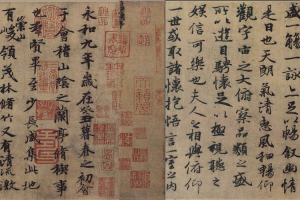 盛一觴一詠亦足以暢敘幽情
是日也天朗氣清惠風和暢仰
觀宇宙之大俯察品類之盛
所以遊目騁懷足以極視聽之
娛信可樂也夫人之相與俯仰
一世或取諸懷抱悟言一室之內
永和九年歲在癸丑暮春之初會
于會稽山陰之蘭亭脩禊事
也羣賢畢至少長咸集此地
有崇山峻領茂林脩竹又有清流激